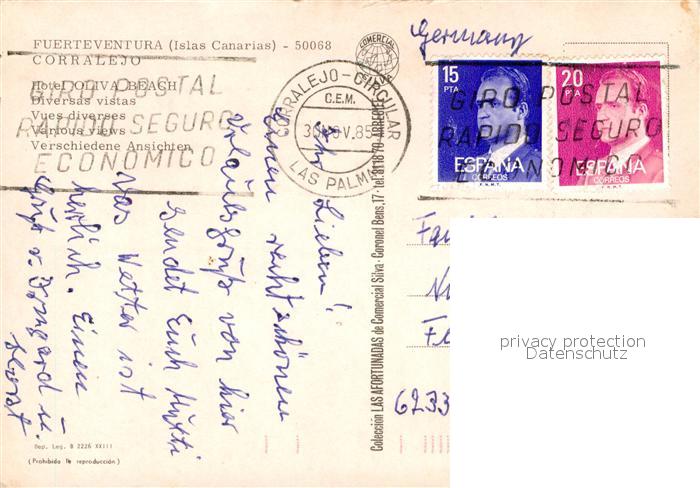 FUERTEVENTURA (Islas Canarias) - 50068
CORRALEJO
Hotel OLIVA BEACH
Diversas vistas
Vues diverses
Various views
Verschiedene Ansichten
GIRO POSTAL
RAPIDO SEGURO
ECONOMICO
COMERCIAL
CORRALEJO-CIRCULAR
C.E.M.
30 NOV. 85
LAS PALMAS
Germany
15
PTA
ESPAÑA
CORREOS
F.N.M.T.
20
PTA
ESPAÑA
CORREOS
F.N.M.T.
GIRO POSTAL
RAPIDO SEGURO
ECONOMI
Ihr Lieben!
Einen recht schönen
Urlaubsgruß von hier
sendet Euch Mutti
Das Wetter ist
herrlich. Einen
Gruß v. Irmgard u.
Horst
Colección LAS AFORTUNADAS de Comercial Silva - Coronel Bens, 17 - Tel. 811870 - ARRECIFE
Fa
6233
privacy protection
Datenschutz
Dep. Leg. B 2226 XXIII
(Prohibida la reproducción)